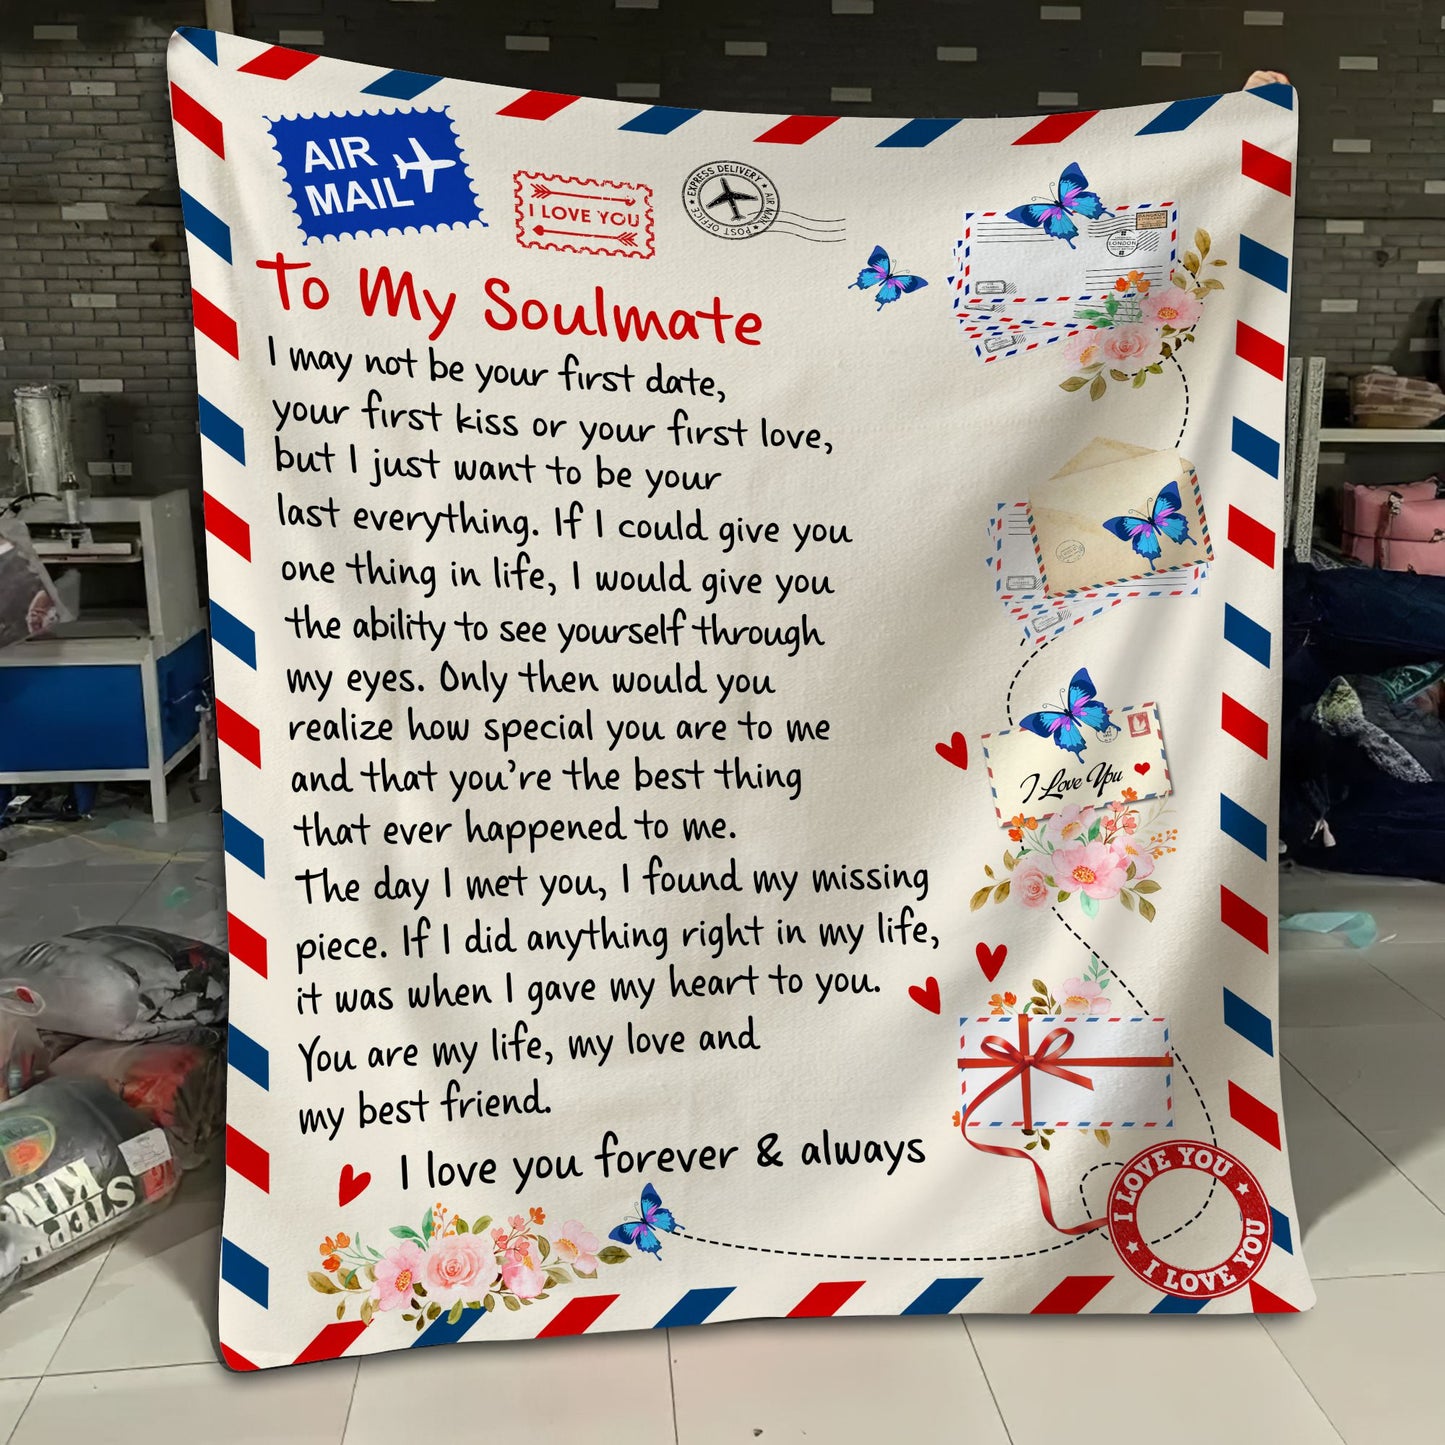 AIR
MAIL
I LOVE YOU
EXPRESS DELIVERY
AIR MAIL
POST OFFICE
LONDON
To My Soulmate
I may not be your first date,
your first kiss or your first love,
but I just want to be your
last everything. If I could give you
one thing in life, I would give you
the ability to see yourself through
my eyes. Only then would you
realize how special you are to me
and that you're the best thing
that ever happened to me.
The day I met you, I found my missing
piece. If I did anything right in my life,
it was when I gave my heart to you.
You are my life, my love and
my best friend.
I love you forever & always
I Love You
I LOVE YOU
I LOVE YOU